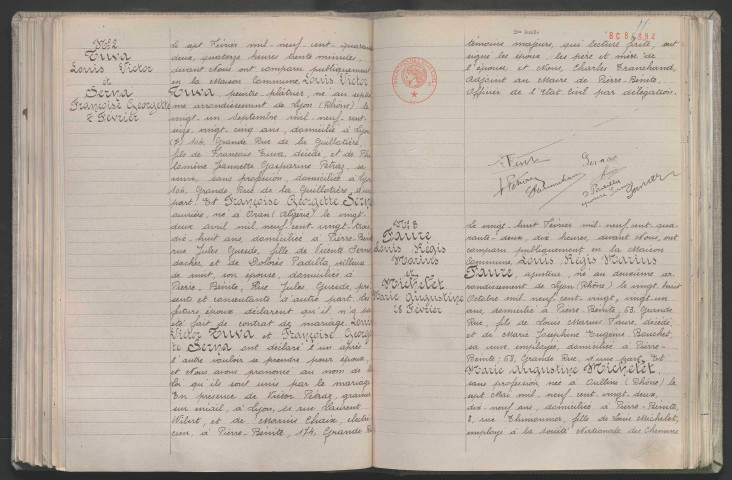 N° 2
Tuva
Louis Victor
et
Serna
Françoise Georgette
7 Février
Le sept Février mil neuf cent quarante
deux, quatorze heures trente minutes,
devant Nous ont comparu publiquement
en la Maison Commune, Louis Victor
Tuva, peintre-plâtrier, né au
arrondissement de Lyon (Rhône) le
vingt un Septembre mil neuf cent
seize, vingt cinq ans, domicilié à Lyon
106, Grande Rue de la Guillotière,
fils de François Tuva, décédé, et de
Jeannette Gasparine Pétraz, sa
veuve, sans profession, domiciliée à Lyon
106, Grande Rue de la Guillotière, d'une
part. Et Françoise Georgette Serna
ouvrière, née à Oran (Algérie) le vingt
deux avril mil neuf cent vingt trois
dix huit ans, domiciliée à Pierre-Bénite
rue Jules Guesde, fille de Vicente Serna
docker, et de Dolorès Padilla,
de nuit, son épouse, domiciliés à
Pierre-Bénite, Rue Jules Guesde,
sents et consentants d'autre part. Les
futurs époux déclarent qu'il n'a pas
été fait de contrat de mariage. Louis
Victor Tuva et Françoise Georget-
te Serna ont déclaré l'un après
l'autre vouloir se prendre pour époux,
et Nous avons prononcé au nom de la
loi qu'ils sont unis par le mariage
En présence de Victor Pétraz, graveur
sur émail, à Lyon, rue Laurent
et de Marius Chaix,
à Pierre-Bénite, 174, Grande Rue
témoins majeurs, qui lecture faite, ont
signé les époux, les père et mère de
l'épouse, et Nous, Charles Franchand,
Adjoint au Maire de Pierre-Bénite,
Officier de l'Etat Civil par délégation.
N° 3
Faure
Louis Régis
Marius
et
Michelet
Marie Augustine
28 Février
Le vingt huit Février mil neuf cent qua-
rante-deux, dix heures, devant Nous, ont
comparu publiquement en la Maison
Commune, Louis Régis Marius
Faure, ajusteur, né au deuxième ar-
rondissement de Lyon (Rhône) le vingt huit
Octobre mil neuf cent vingt, vingt un
ans, domicilié à Pierre-Bénite, 63, Grande
Rue, fils de Louis Marius Faure, décédé,
et de Marie Joséphine Eugénie Bouchet,
sa veuve, employée, domiciliée à Pierre-
Bénite, 63, Grande Rue, d'une part. Et
Marie Augustine Michelet,
sans profession, née à Oullins (Rhône) le
sept Mai mil neuf cent vingt deux,
dix-neuf ans, domiciliée à Pierre-Bénite,
8, rue Thimonnier, fille de Louis Michelet,
employé à la Société Nationale des Chemins